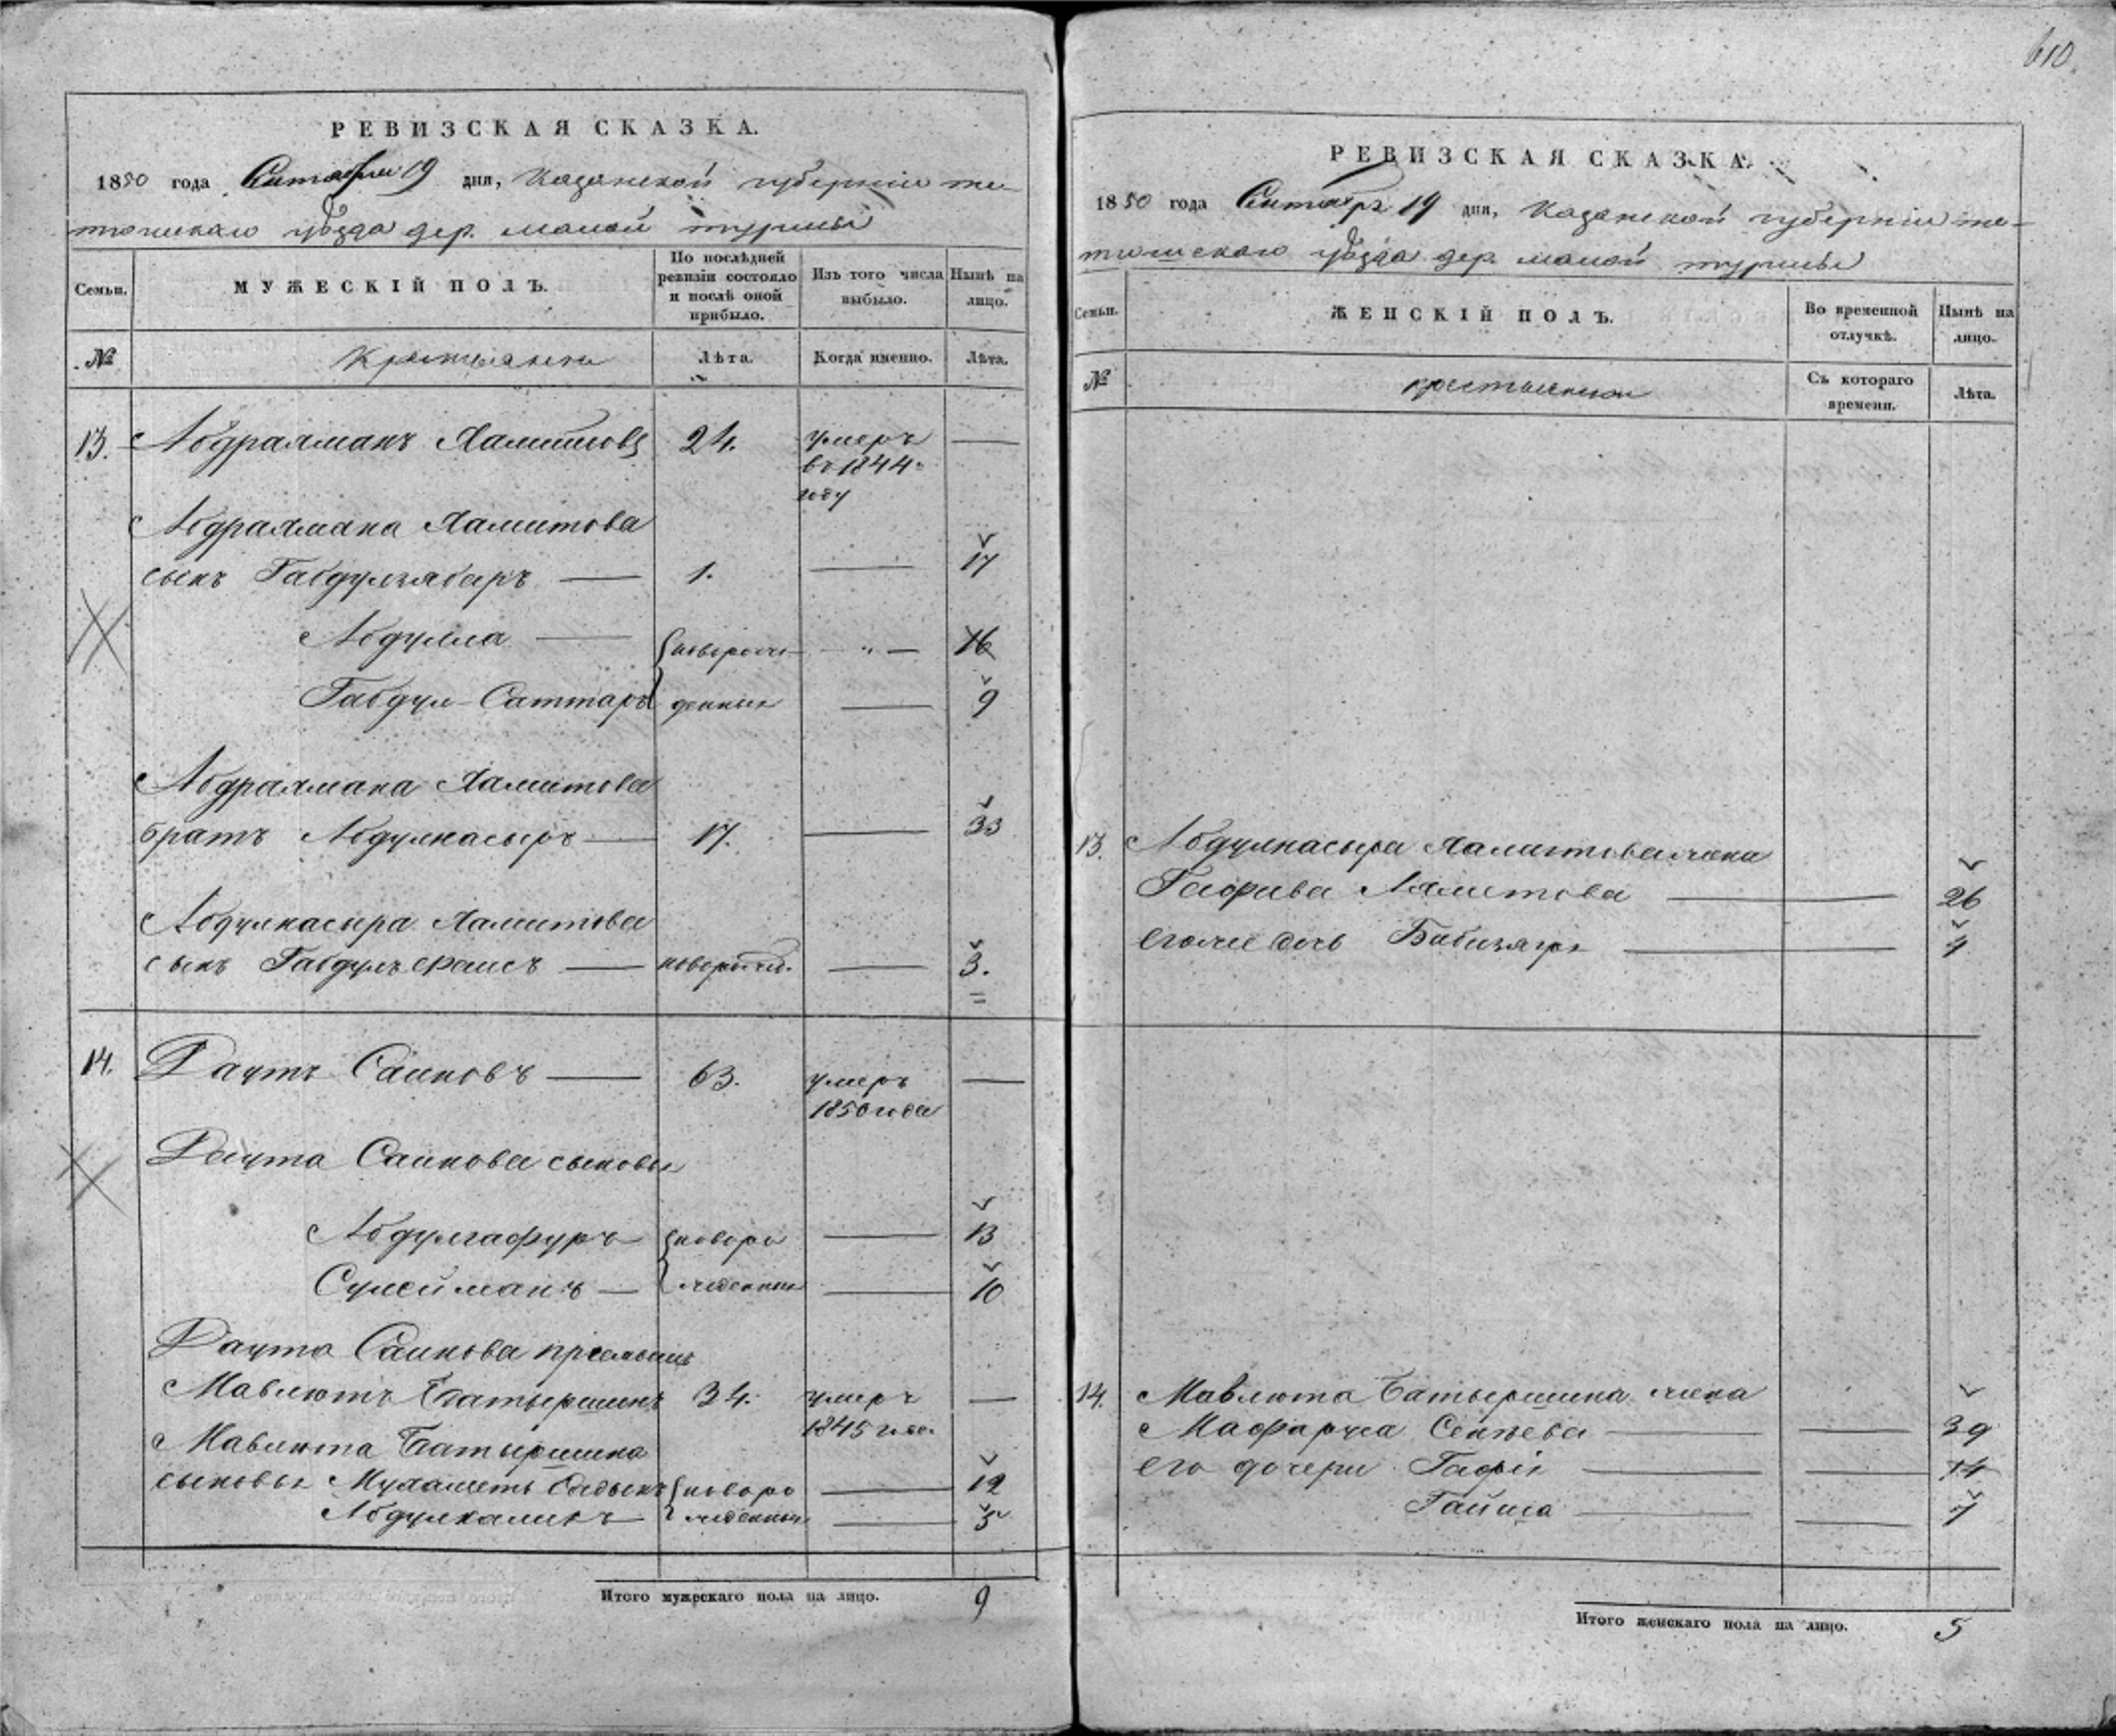 610
РЕВИЗСКАЯ СКАЗКА.
1850 года Сентября 19 дня, Казанской губернии те-
тюшскаго уѣзда дер. малой турмы
Семьи. МУЖЕСКІЙ ПОЛЪ. По послѣдней ревизіи состояло и послѣ оной прибыло. Изъ того числа выбыло. Нынѣ на лицо.
№ Крестьяне Лѣта. Когда именно. Лѣта.
13. Абдрахманъ Хамитовъ 24. умеръ в 1844 году —
Абдрахмана Хамитова
сынъ Габдулзябаръ — 1. — 17
Абдулла — новорож- " — 16
Габдул-Саттаръ денные — 9
Абдрахмана Хамитова
братъ Абдулнасыръ — 17. — 33
Абдулнасыра Хамитова
сынъ Габдулъ новорожд. — 3.
14. Даутъ Саиновъ — 63. умеръ 1850 года —
Даута Саинова сыновья
Абдулгафуръ новоро — 13
Сулейманъ — жденные — 10
Даута Саинова пріемышъ
Мавлютъ Батыршинъ 34. умеръ 1845 года —
Мавлюта Батыршина
сыновья Мухаметъ Садыкъ новоро — 12
Абдулхаликъ — жденные — 5
Итого мужескаго пола на лицо. 9
РЕВИЗСКАЯ СКАЗКА.
1850 года Сентября 19 дня, Казанской губерніи те-
тюшскаго уѣзда дер. малой турмы
Семьи. ЖЕНСКІЙ ПОЛЪ. Во временной отлучкѣ. Нынѣ на лицо.
№ крестьянки Съ котораго времени. Лѣта.
13. Абдулнасыра Хамитова жена
Хамитова — 26
его же дочь — 4
14. Мавлюта Батыршина жена
— — 39
его дочери Гафія — — 14
Гайша — — 7
Итого женскаго пола на лицо. 5